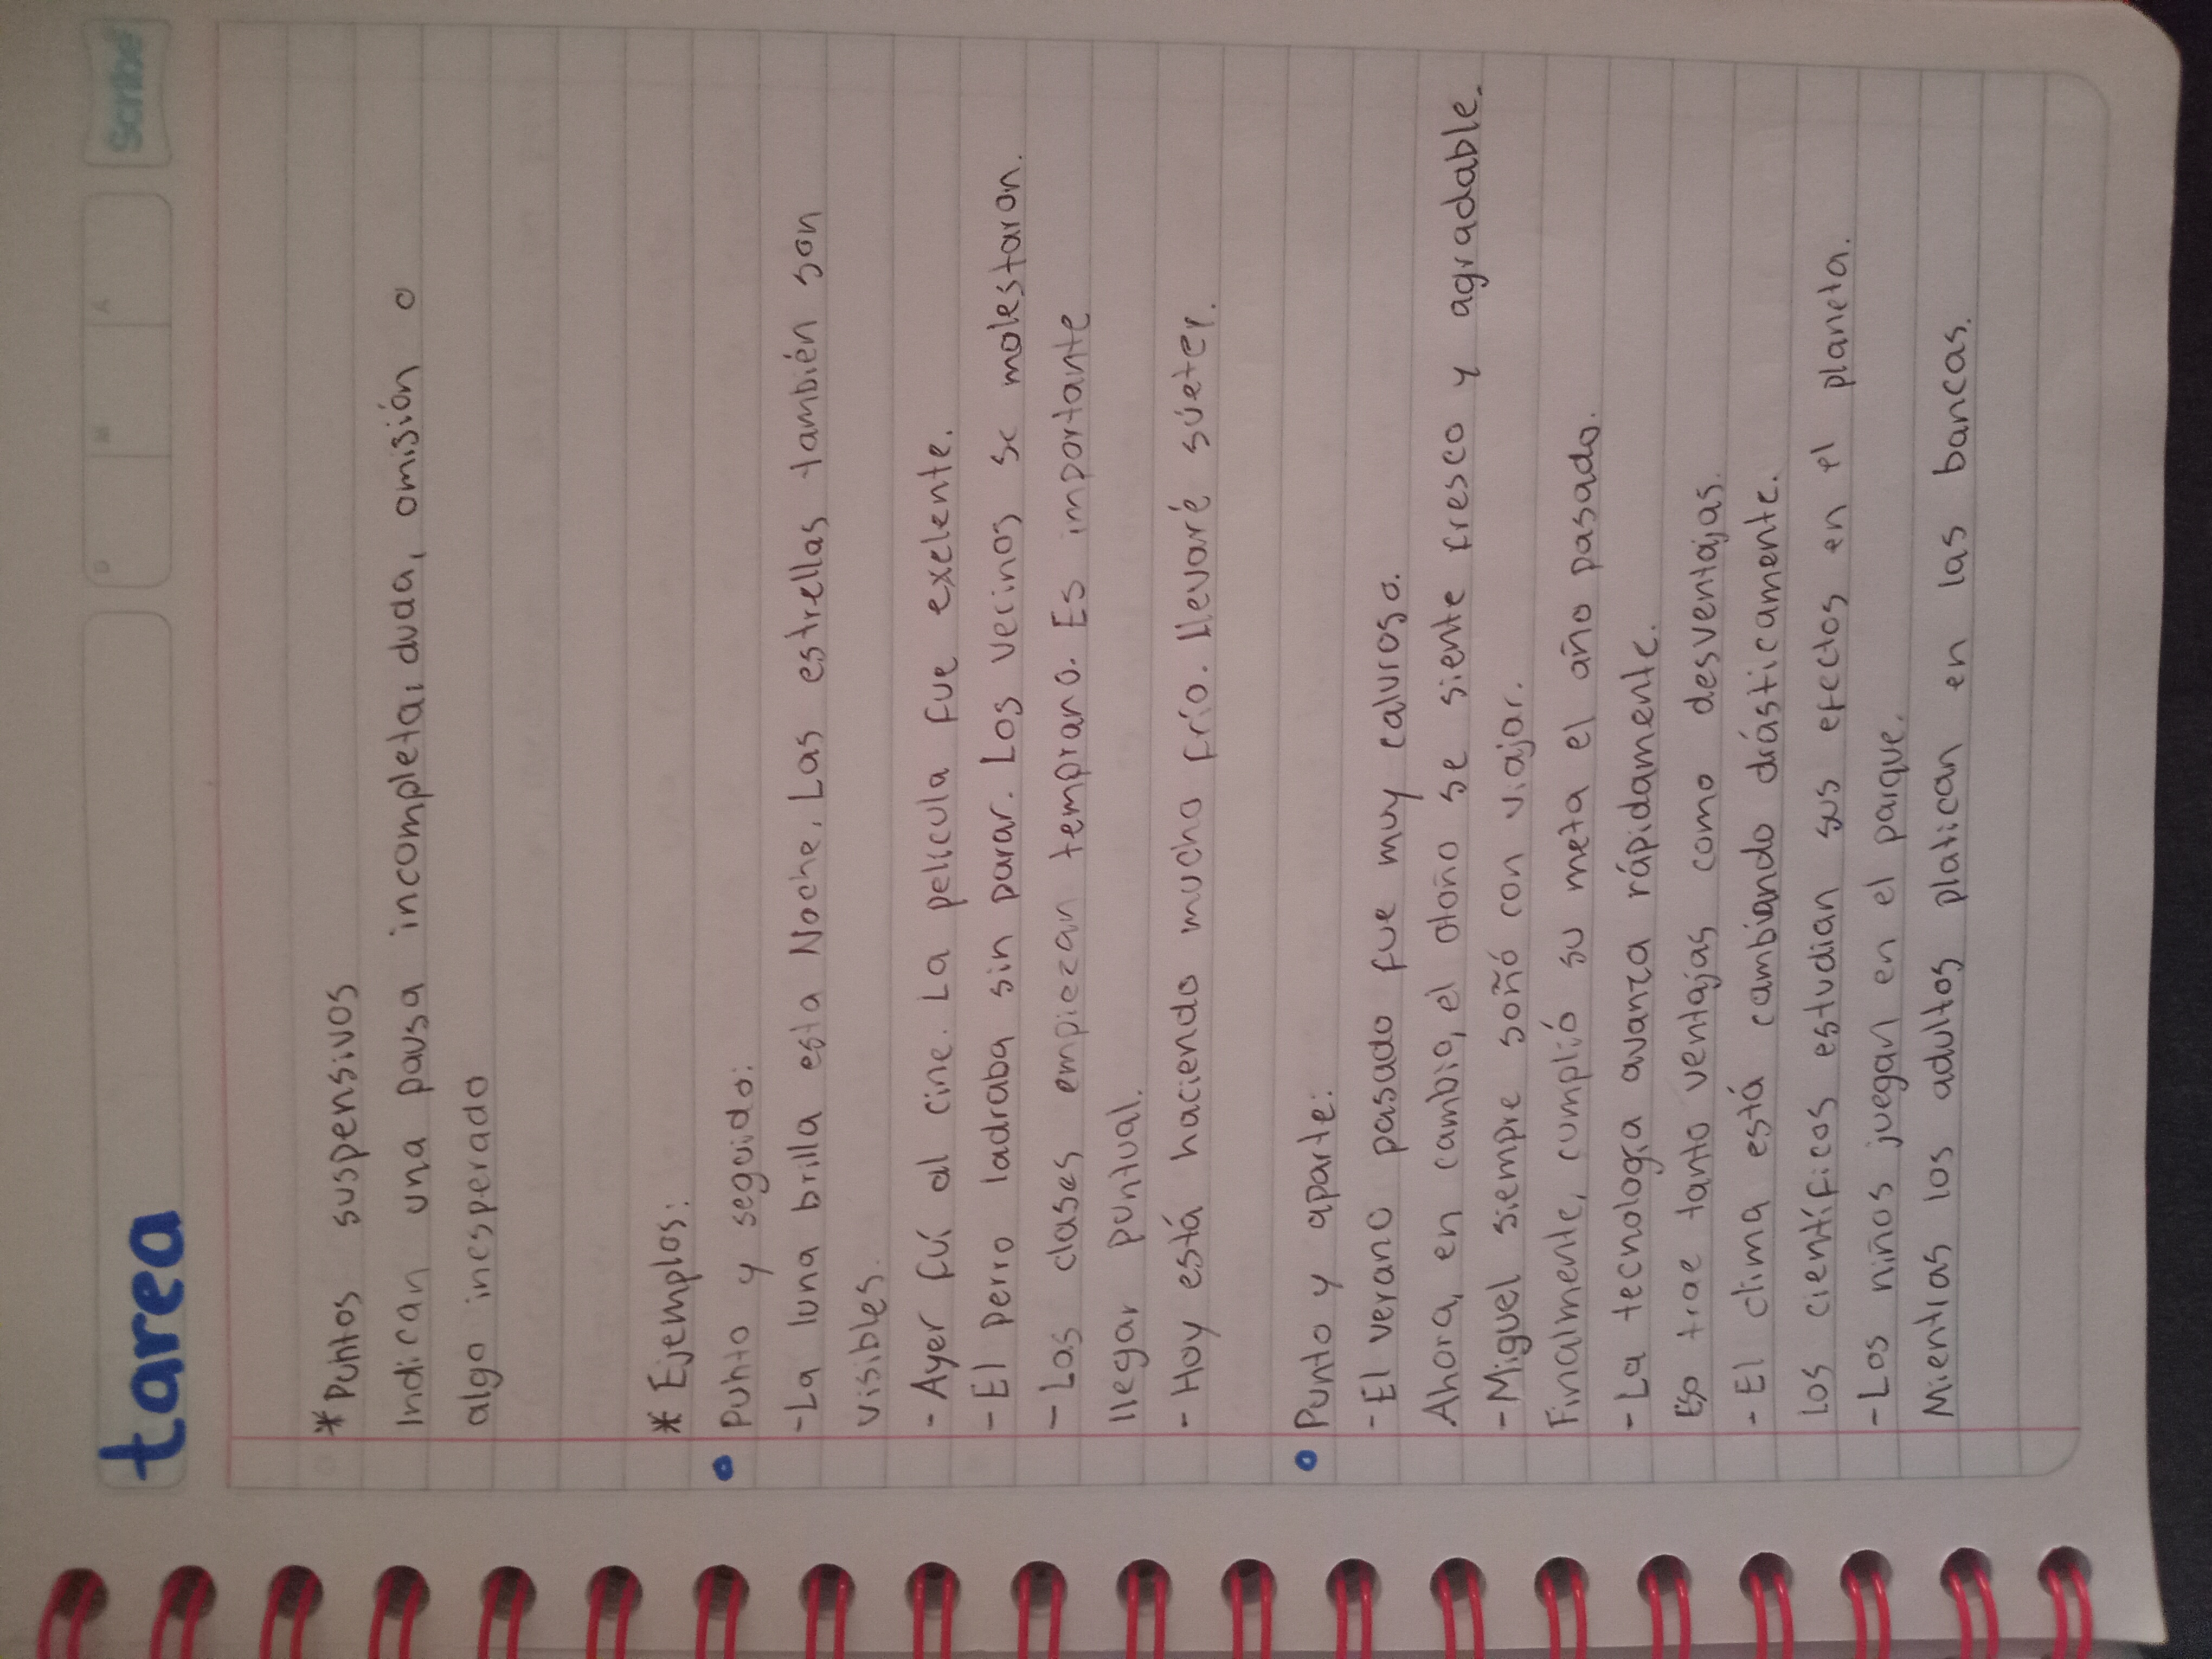 tarea
D M A
Scribe
* Puntos suspensivos
Indican una pausa incompleta, duda, omisión o
algo inesperado
* Ejemplos:
Punto y seguido:
-La luna brilla esta Noche. Las estrellas también son
visibles.
- Ayer fuí al cine. La película fue exelente.
- El perro ladraba sin parar. Los vecinos se molestaron.
- Las clases empiezan temprano. Es importante
llegar puntual.
- Hoy está haciendo mucho frío. Llevaré súeter.
Punto y aparte:
- El verano pasado fue muy caluroso.
Ahora, en cambio, el otoño se siente fresco y agradable.
- Miguel siempre soñó con viajar.
Finalmente, cumplió su meta el año pasado.
- La tecnología avanza rápidamente.
Eso trae tanto ventajas como desventajas.
- El clima está cambiando drásticamente.
Los científicos estudian sus efectos en el planeta.
- Los niños juegan en el parque.
Mientras los adultos platican en las bancas.